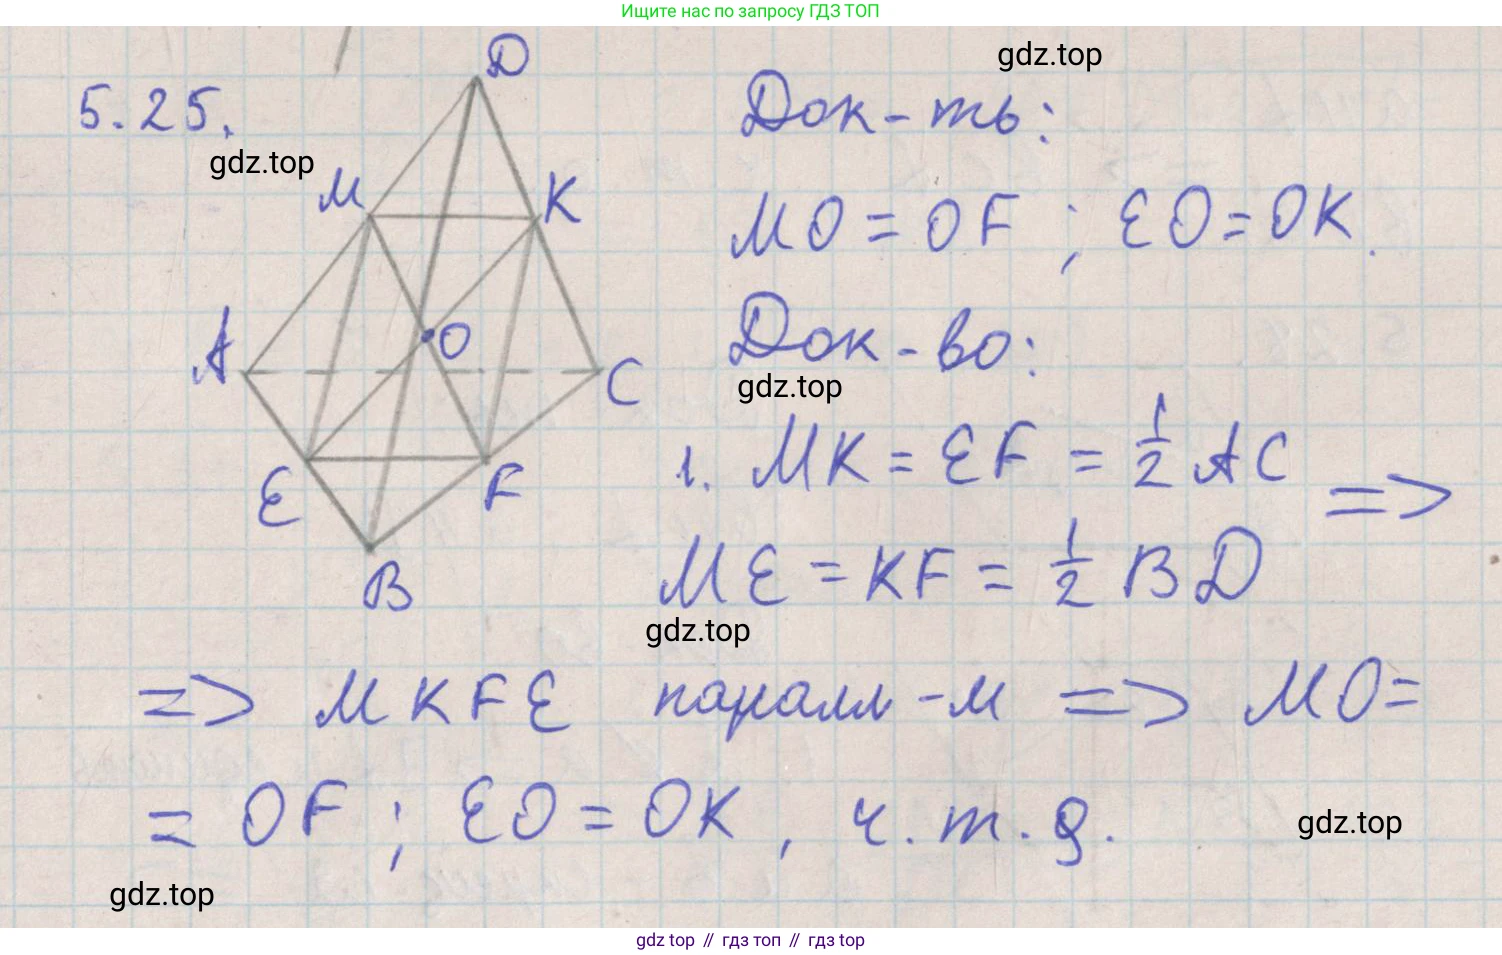 Ищите нас по запросу ГДЗ ТОП
gdz.top
5.25.
gdz.top
D
M
K
A
O
C
E
F
B
Док-ть:
MO = OF ; EO = OK.
Док-во:
gdz.top
1. MK = EF = 1/2 AC =>
ME = KF = 1/2 BD
gdz.top
=> MKFE паралл-м => MO=
= OF ; EO = OK , ч.т.д.
gdz.top
gdz.top
gdz top // гдз топ // гдз top